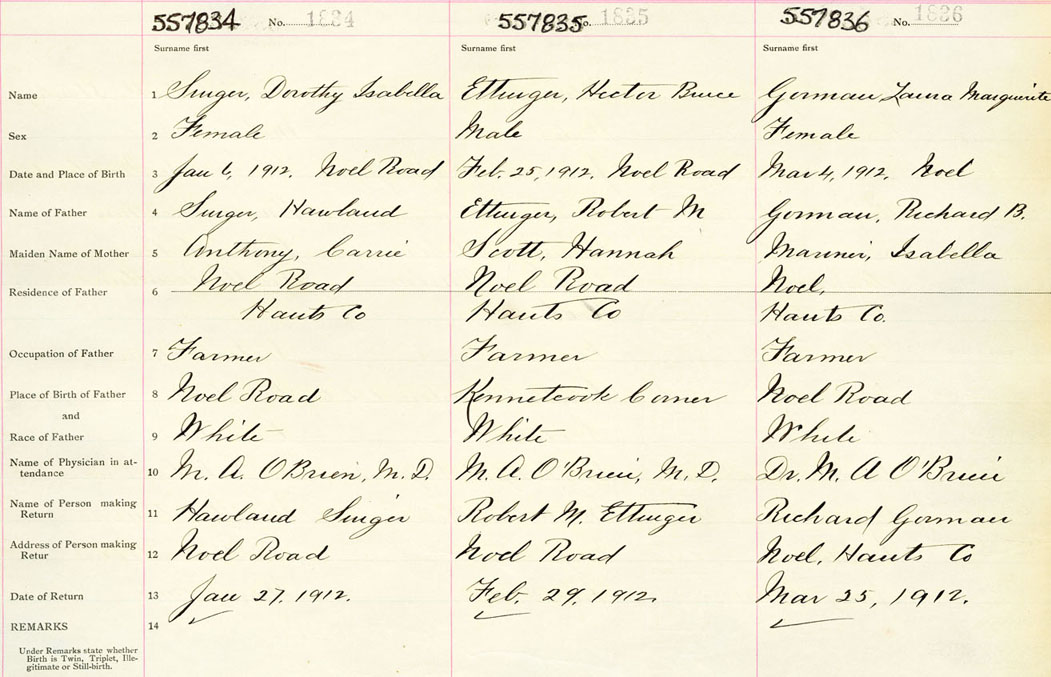 557834 No. 1834 557835 No. 1835 557836 No. 1836
Surname first Surname first Surname first
Name 1 Singer, Dorothy Isabella Ettinger, Hector Bruce Gorman, Laura Marguerite
Sex 2 Female Male Female
Date and Place of Birth 3 Jan 6, 1912. Noel Road Feb. 25, 1912. Noel Road Mar 4, 1912. Noel
Name of Father 4 Singer, Hawland Ettinger, Robert M Gorman, Richard B.
Maiden Name of Mother 5 Anthony, Carrie Scott, Hannah Isabella
Residence of Father 6 Noel Road Noel Road Noel,
Hants Co Hants Co Hants Co.
Occupation of Father 7 Farmer Farmer Farmer
Place of Birth of Father 8 Noel Road Kennetcook Corner Noel Road
and
Race of Father 9 White White White
Name of Physician in at-
tendance 10 M. A. O'Brien, M. D. M. A. O'Brien, M. D. Dr. M. A O'Brien
Name of Person making
Return 11 Hawland Singer Robert M. Ettinger Richard Gorman
Address of Person making
Retur 12 Noel Road Noel Road Noel, Hants Co
Date of Return 13 Jan 27, 1912. Feb. 29, 1912. Mar 25, 1912.
REMARKS 14
Under Remarks state whether
Birth is Twin, Triplet, Ille-
gitimate or Still-birth.